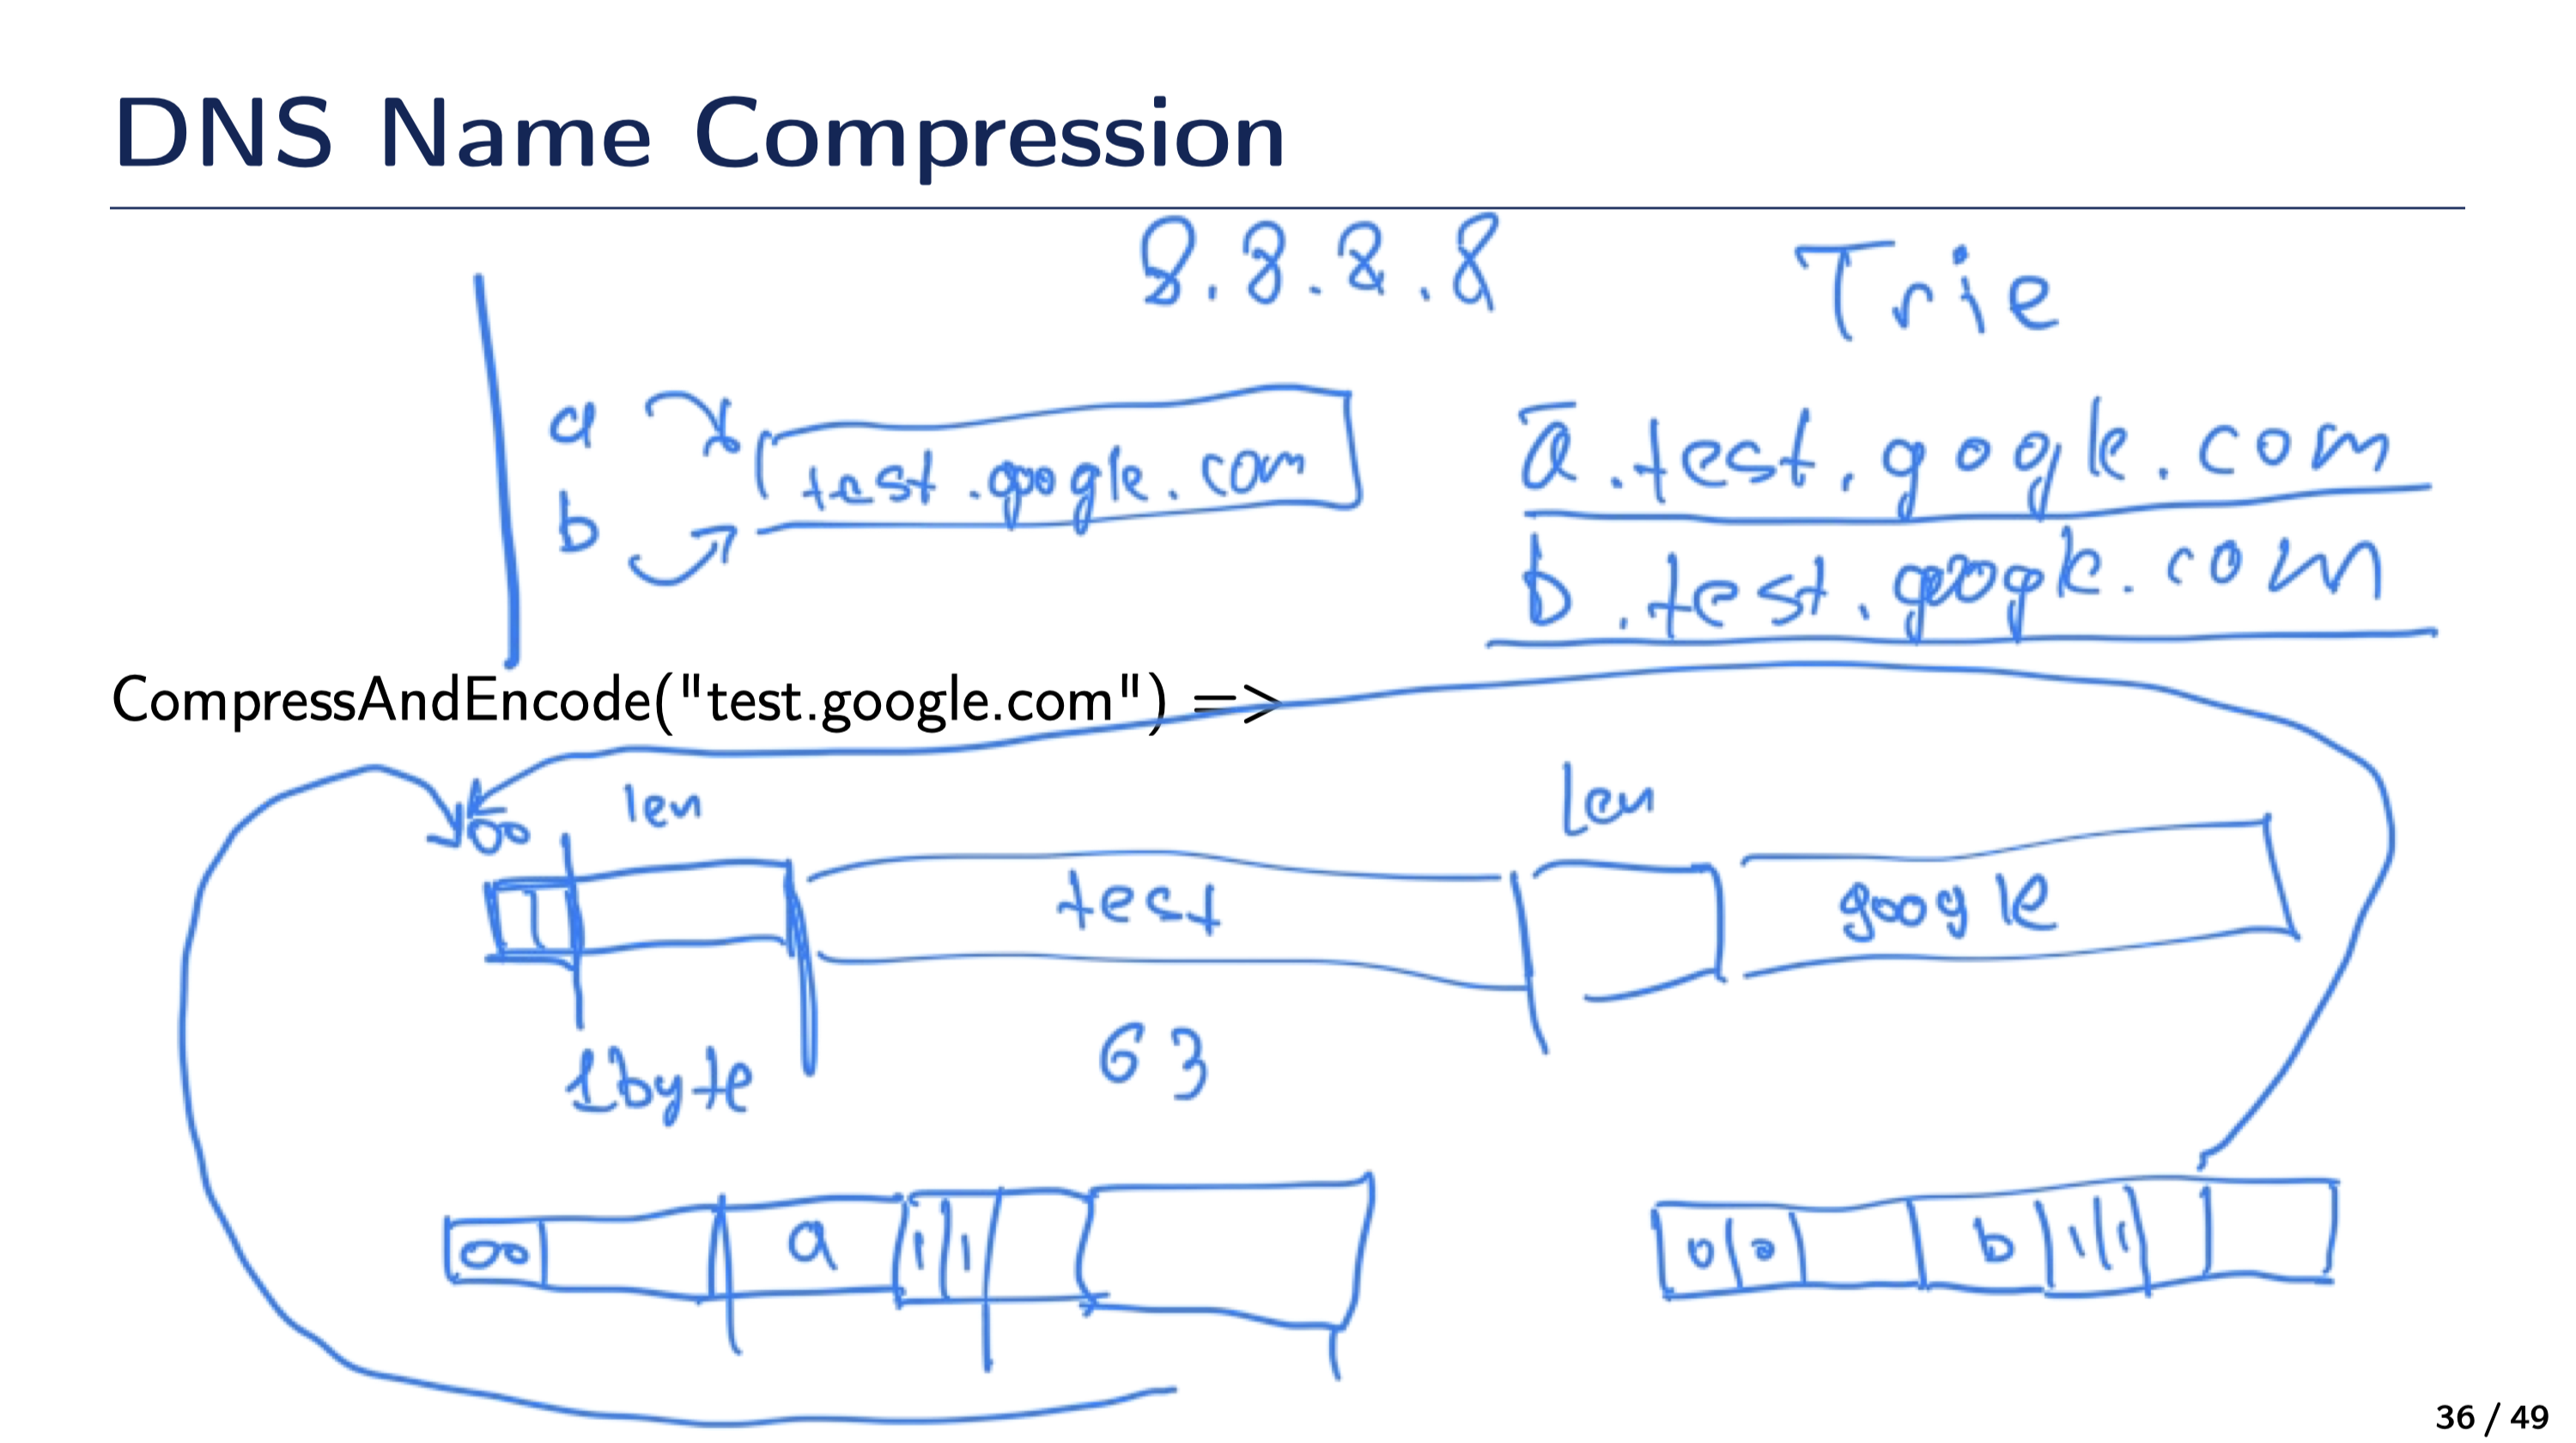 DNS Name Compression
8.8.8.8
Trie
a
test.google.com
a.test.google.com
b
b.test.google.com
CompressAndEncode("test.google.com") =>
00
len
len
test
google
1byte
63
00
a
1 1
0 0
b
1 1
36 / 49